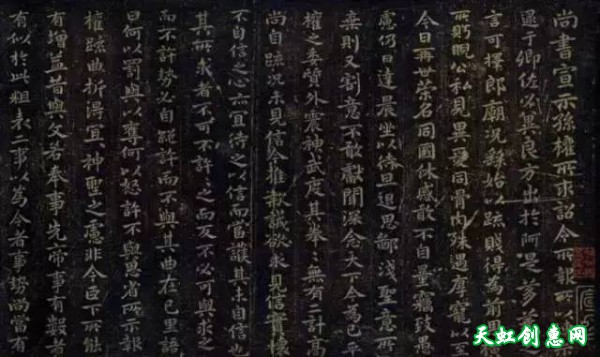 尚書宣示孫權所求詔令所報所以
逮于卿佐必冀良方出於阿是芻蕘
言可擇郎廟況繇始以疏賤得為前
所眄睨公私見異愛同骨肉殊遇厚寵以至
今日再世榮名同國休慼敢不自量竊致愚
慮仍日達晨坐以待旦退思鄙淺聖意所
棄則又割意不敢獻聞深念天下今為已平
權之委質外震神武度其拳々無有二計高
尚自疏況未見信今推款誠欲求見信實懷
不自信之心亦宜待之以信而當護其未自信
其所求者不可不許許之而反不必可與求之
而不許勢必自絕許而不與其曲在己里語
曰何以罰與以奪何以怒許不與思省所示報
權疏曲折得宜宜神聖之慮非今臣下所能
有增益昔與文若奉事先帝事有數者
有似於此粗表二事以為今者事勢尚當有
天虹创惠网